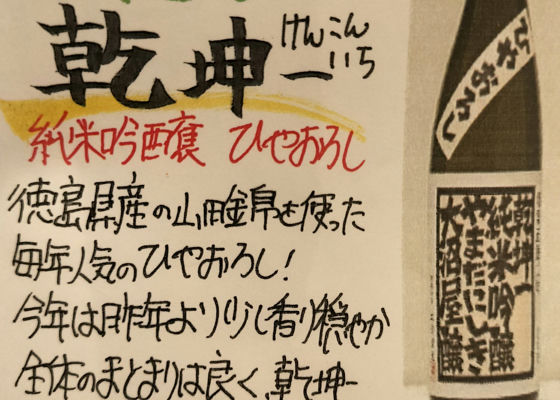 乾坤一
けんこん
いち
純米吟醸 ひやおろし
徳島県産の山田錦を使った
毎年人気のひやおろし!
今年は昨年より少し香り穏やか
全体のまとまりは良く、乾坤一
ひやおろし
乾坤一
純米吟醸
やまだにしき
大沼屋醸